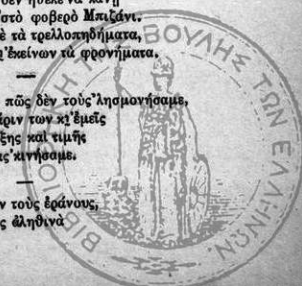 δὲν ἤθελε νὰ κάνῃ
στὸ φοβερὸ Μπιζάνι.
ὲ τὰ τρελλοπηδήματα,
κι’ ἐκείνων τὰ φρονήματα.
πῶς δὲν τοὺς ’λησμονήσαμε,
άριν των κι’ ἐμεῖς
ξης καὶ τιμῆς
ς ’κινήσαμε.
ν τοὺς ἐράνους,
ς ἀληθινὰ
ΒΙΒΛΙΟΘΗΚΗ ΤΗΣ ΒΟΥΛΗΣ ΤΩΝ ΕΛΛΗΝΩΝ